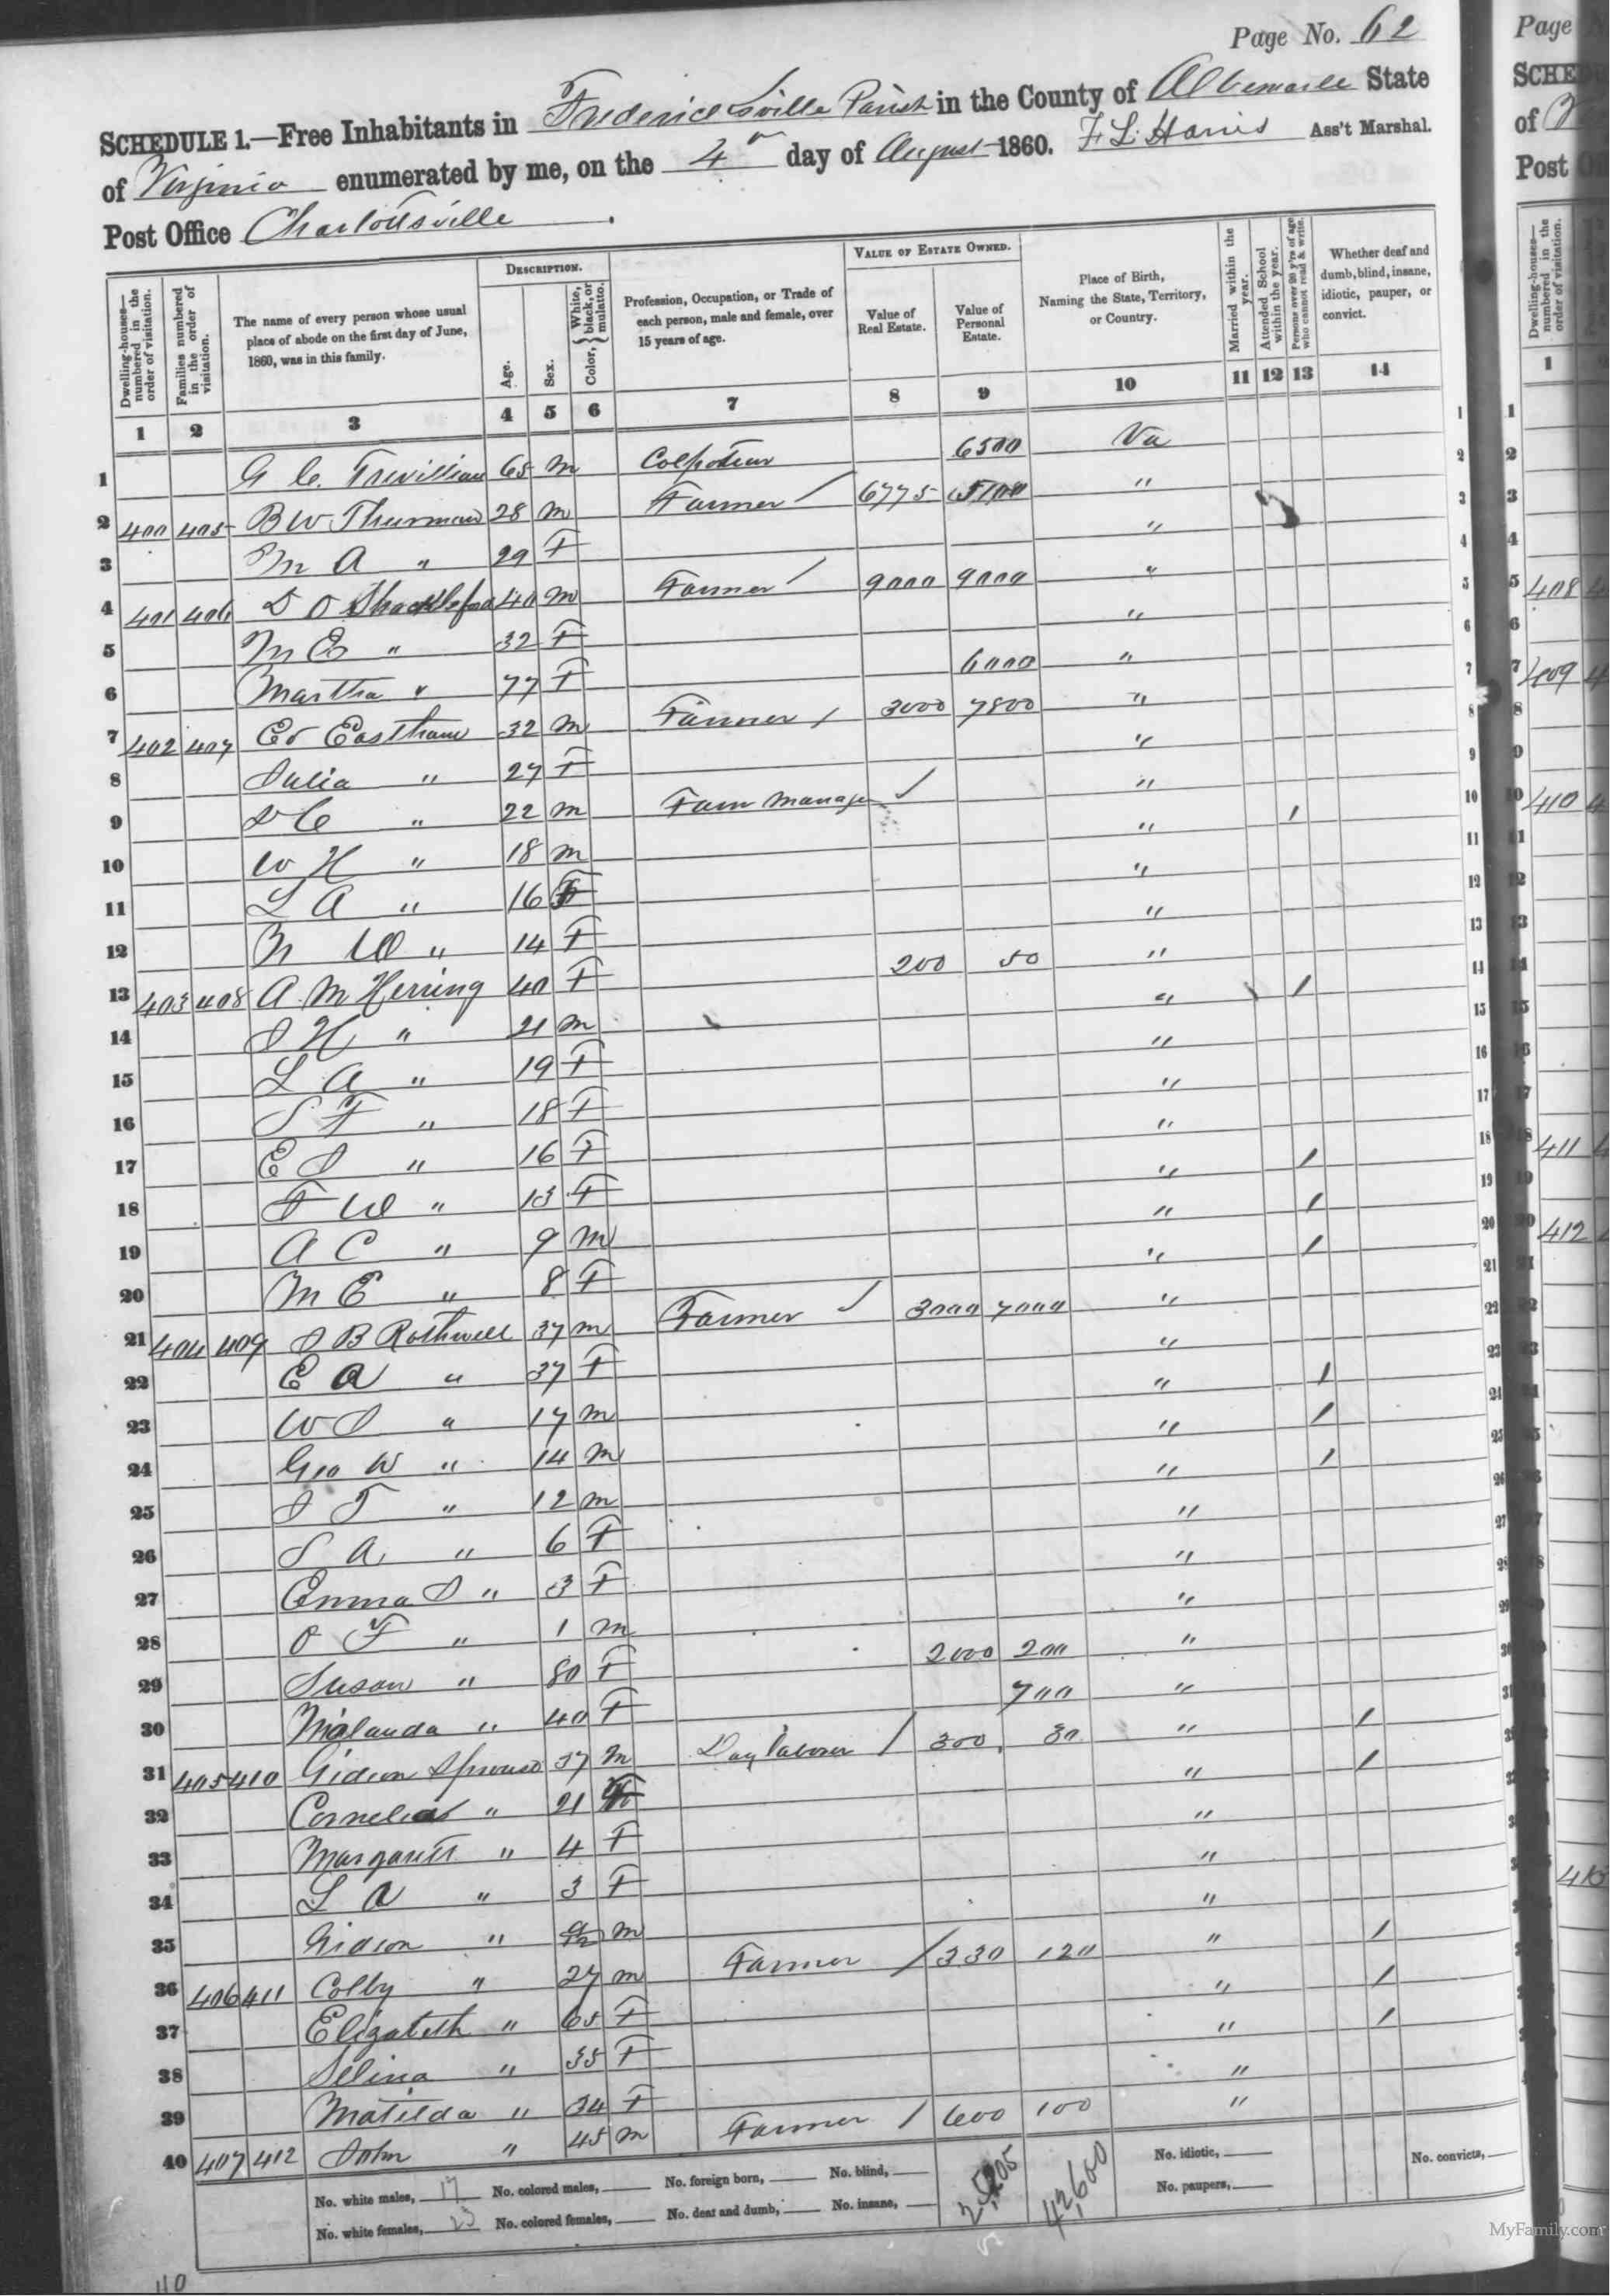 Page No. 62
SCHEDULE 1.—Free Inhabitants in Fredericksville Parish in the County of Albemarle State
of Virginia enumerated by me, on the 4th day of August 1860. F L Harris Ass't Marshal.
Post Office Charlottsville.
Dwelling-houses—numbered in the order of visitation.
Families numbered in the order of visitation.
The name of every person whose usual place of abode on the first day of June, 1860, was in this family.
DESCRIPTION.
Age.
Sex.
Color, { White, black, or mulatto.
Profession, Occupation, or Trade of each person, male and female, over 15 years of age.
VALUE OF ESTATE OWNED.
Value of Real Estate.
Value of Personal Estate.
Place of Birth, Naming the State, Territory, or Country.
Married within the year.
Attended School within the year.
Persons over 20 y'rs of age who cannot read & write.
Whether deaf and dumb, blind, insane, idiotic, pauper, or convict.
1 2 3 4 5 6 7 8 9 10 11 12 13 14
1 G C. Trevillian 65 m Colpoteur 6500 Va
2 400 405 B W Thurman 28 m Farmer / 6775 "
3 M A " 29 F "
4 401 406 D O Shackleford 40 m Farmer / 9000 9000 "
5 M E " 32 F "
6 Martha " 77 F 6000 "
7 402 407 Ed Eastham 32 m Farmer / 3000 7800 "
8 Julia " 27 F "
9 D C " 22 m Farm manager / "
10 W H " 18 m " /
11 L A " 16 F "
12 N W " 14 F "
13 403 408 A. M Herring 40 F 200 50 "
14 J H " 21 m " /
15 L A " 19 F "
16 S F " 18 F "
17 E J " 16 F "
18 F W " 13 F " /
19 A C " 9 m " /
20 M E " 8 F " /
21 404 409 J B Rothwell 37 m Farmer / 3000 7000 "
22 E A " 37 F "
23 W J " 17 m " /
24 Geo W " 14 m " /
25 J T " 12 m " /
26 S A. " 6 F "
27 Emma J " 3 F "
28 O F " 1 m "
29 Susan " 80 F 2000 200 "
30 Malanda " 40 F 700 "
31 405 410 Gideon Sprouse 37 m Day laborer / 300 30 " /
32 Cornelia " 21 F " /
33 Margarett " 4 F "
34 L A " 3 F "
35 Gideon " m "
36 406 411 Colby " 27 m Farmer / 330 120 " /
37 Elizabeth " 65 F " /
38 Selina " 35 F " /
39 Matilda " 34 F "
40 407 412 John " 45 m Farmer / 600 100 "
No. white males, 17 No. colored males, No. foreign born, No. blind, No. idiotic, No. convicts,
No. white females, 23 No. colored females, No. deaf and dumb, No. insane, No. paupers,
25,205 42,600
110
Page
SCHE
of
Post
408
409
410
411
412
MyFamily.com